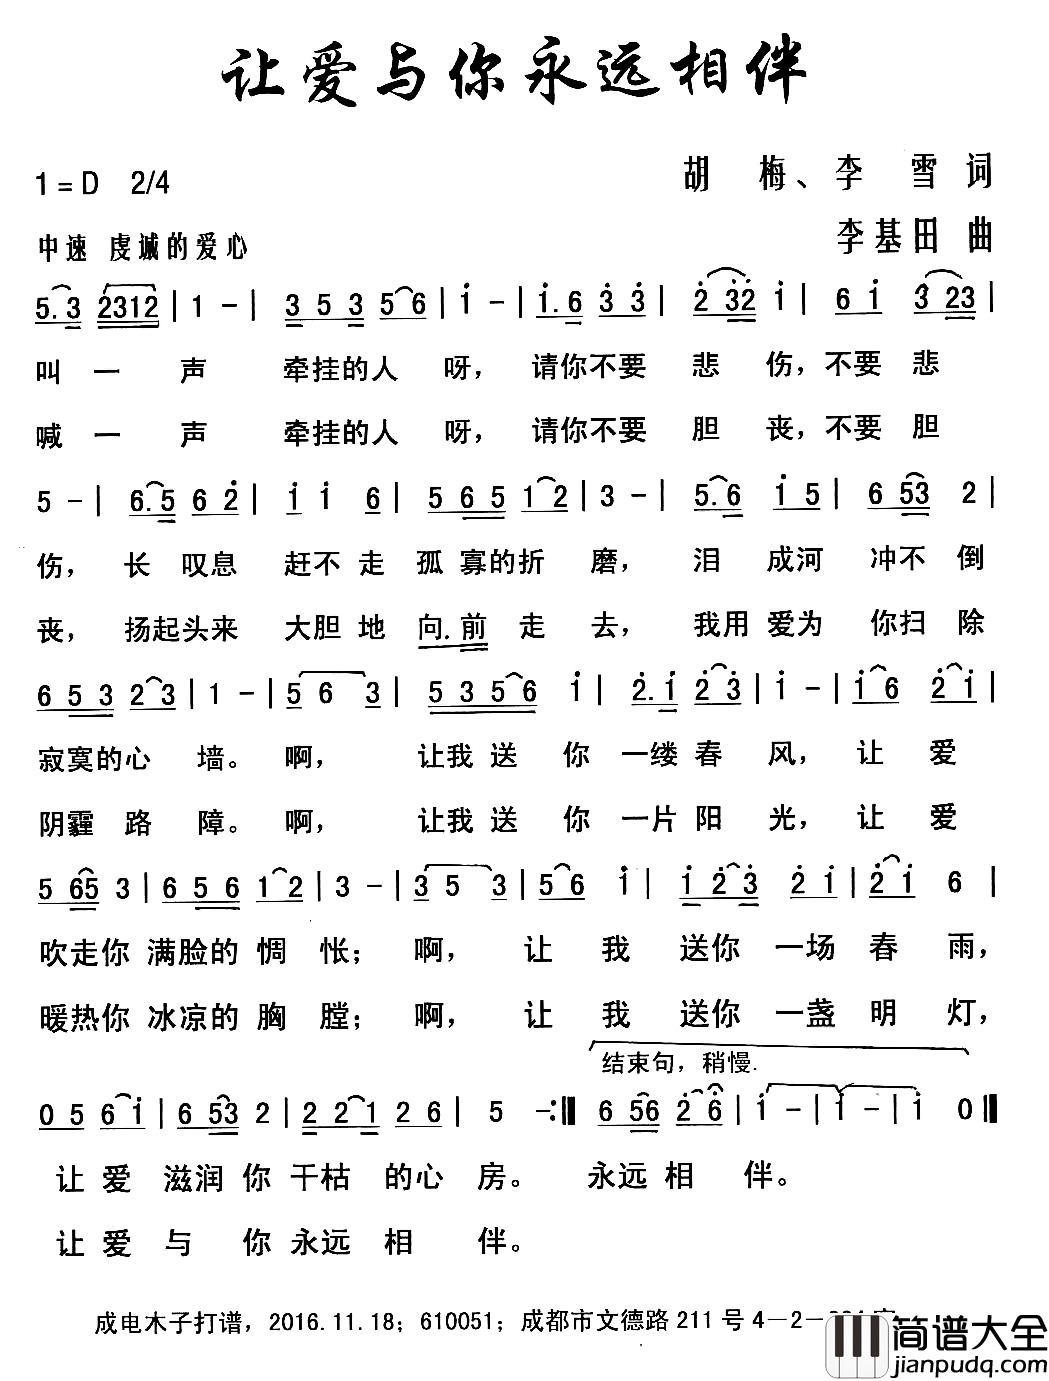 让爱与你永远相伴
1=D 2/4 胡 梅、李 雪 词
中速 虔诚的爱心 李基田 曲
5.3 2312 | 1 - | 3 5 3 5 6 | i - | i.6 3 3 | 2 32 i | 6 i 3 23 |
叫 一 声 牵挂的人 呀， 请你不要 悲 伤，不要 悲
喊 一 声 牵挂的人 呀， 请你不要 胆 丧，不要 胆
5 - | 6.5 6 2 | i i 6 | 5 6 5 1 2 | 3 - | 5.6 i 5 | 6 53 2 |
伤， 长 叹息 赶不 走 孤 寡的折 磨， 泪 成河 冲不 倒
丧， 扬起头来 大胆 地 向.前 走 去， 我用 爱为 你扫 除
6 5 3 2 3 | 1 - | 5 6 3 | 5 3 5 6 i | 2.i 2 3 | i - | i 6 2 i |
寂寞的心 墙。 啊， 让我 送 你 一缕春 风， 让 爱
阴霾 路 障。 啊， 让我 送 你 一片 阳 光， 让 爱
5 65 3 | 6 5 6 1 2 | 3 - | 3 5 3 | 5 6 i | i 2 3 2 i | 2 i 6 |
吹走你 满脸的 惆 怅； 啊， 让 我 送你 一场 春 雨，
暖热你 冰凉的 胸 膛； 啊， 让 我 送你 一盏 明 灯，
结束句，稍慢.
0 5 6 i | 6 53 2 | 2 2 1 2 6 | 5 -:‖ 6 56 2 6 | i - | i - | i 0‖
让 爱 滋润 你 干枯 的心 房。 永远 相 伴。
让 爱 与 你 永远 相 伴。
成电木子打谱，2016.11.18；610051；成都市文德路 211 号 4－2－
简谱大全
jianpudq.com